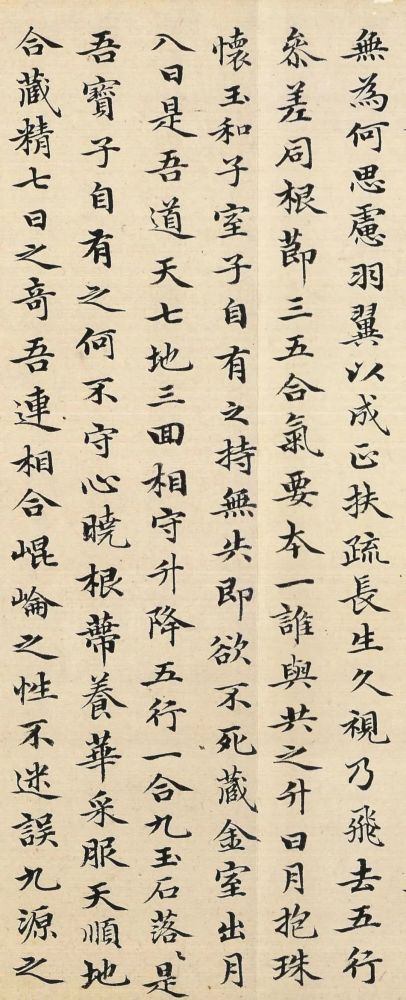 無為何思慮羽翼以成正扶疏長生久視乃飛去五行
參差同根節三五合氣要本一誰與共之升日月抱珠
懷玉和子室子自有之持無失即欲不死藏金室出月
入日是吾道天七地三回相守升降五行一合九玉石落〻是
吾寶子自有之何不守心曉根蔕養華采服天順地
合藏精七日之奇吾連相合崐崘之性不迷誤九源之